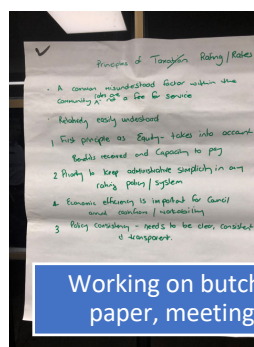 Principles of Taxation Rating/Rates
- A common misunderstood factor within the
community, rates are not a fee for service
- Relatively easily understood
1 First principle as Equity - takes into account
Benefits received and Capacity to pay
2 Priority to keep administrative simplicity in any
rating policy/system
4 Economic efficiency is important for Council
and cashflow/workability
3 Policy Consistency - needs to be clear, consistent
& transparent.
Working on butch
paper, meeting